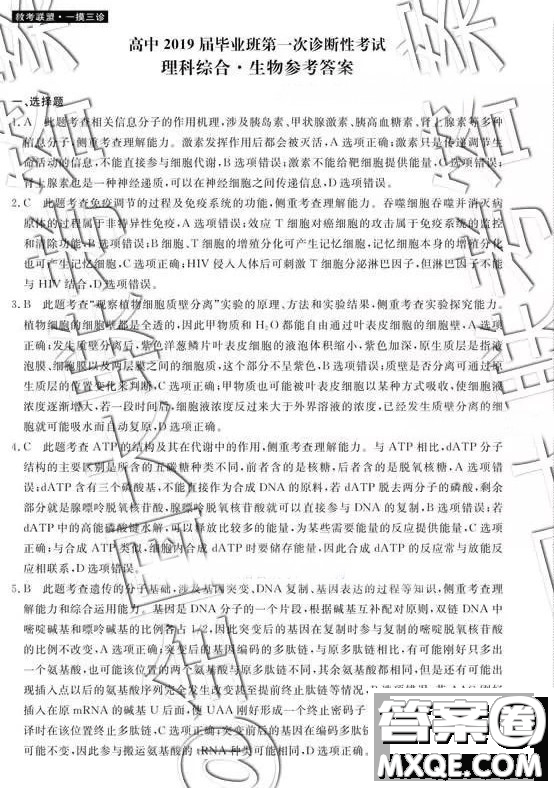 教考联盟·一摸三诊
高中 2019 届毕业班第一次诊断性考试
理科综合·生物参考答案
一、选择题
1. A 此题考查相关信息分子的作用机理,涉及胰岛素、甲状腺激素、胰高血糖素、肾上腺素等多种
信息分子,侧重考查理解能力。激素发挥作用后都会被灭活,A 选项正确;激素只是传递调节生
命活动的信息,不能直接参与细胞代谢,B 选项错误;激素不能给靶细胞提供能量,C 选项错误;
肾上腺素也是一种神经递质,可以在神经细胞之间传递信息,D 选项错误。
2. C 此题考查免疫调节的过程及免疫系统的功能,侧重考查理解能力。吞噬细胞吞噬并消灭病
原体的过程属于非特异性免疫,A 选项错误;效应 T 细胞对癌细胞的攻击属于免疫系统的监控
和清除功能,B 选项错误;B 细胞、T 细胞的增殖分化可产生记忆细胞,记忆细胞本身的增殖分化
也可产生记忆细胞,C 选项正确;HIV 侵入人体后可刺激 T 细胞分泌淋巴因子,但淋巴因子不能
与 HIV 结合,D 选项错误。
3. B 此题考查“观察植物细胞质壁分离”实验的原理、方法和实验结果,侧重考查实验探究能力。
植物细胞的细胞壁都是全透的,因此甲物质和 H₂O 都能自由通过叶表皮细胞的细胞壁,A 选项
正确;发生质壁分离后,紫色洋葱鳞片叶表皮细胞的液泡体积缩小,紫色加深,原生质层是指液
泡膜、细胞膜以及两层膜之间的细胞质,这个部分不呈紫色,B 选项错误;质壁是否分离可通过原
生质层的位置变化来判断,C 选项正确;甲物质也可能被叶表皮细胞以某种方式吸收,使细胞液
浓度逐渐增大,若一段时间后,细胞液浓度反过来大于外界溶液的浓度,已经发生质壁分离的细
胞就可能吸水而自动复原,D 选项正确。
4. C 此题考查 ATP 的结构及其在代谢中的作用,侧重考查理解能力。与 ATP 相比,dATP 分子
结构的主要区别是所含的五碳糖种类不同,前者含的是核糖,后者含的是脱氧核糖,A 选项错
误;dATP 含有三个磷酸基,不能直接作为合成 DNA 的原料,若 dATP 脱去两分子的磷酸,剩余
部分就是腺嘌呤脱氧核苷酸,腺嘌呤脱氧核苷酸就可以直接参与 DNA 的复制,B 选项错误;若
dATP 中的高能磷酸键水解,可以释放比较多的能量,为某些需要能量的反应提供能量,C 选项
正确;与合成 ATP 类似,细胞内合成 dATP 时要储存能量,因此合成 dATP 的反应常与放能反
应相联系,D 选项错误。
5. B 此题考查遗传的分子基础,涉及基因突变、DNA 复制、基因表达的过程等知识,侧重考查理
解能力和综合运用能力。基因是 DNA 分子中的一个片段,根据碱基互补配对原则,双链 DNA 中
嘧啶碱基和嘌呤碱基的比例各占 1/2,因此突变后的基因在复制时参与复制的嘧啶脱氧核苷酸
的比例不改变,A 选项正确;突变后的基因编码的多肽链,与原多肽链相比,有可能刚好只多出
一个氨基酸,也可能该位置的两个氨基酸与原多肽链不同,其余氨基酸都相同,但是还有可能出
现插入点以后的氨基酸序列完全发生改变甚至提前终止肽链等情况,
插入在原 mRNA 的碱基 U 后面,使 UAA 刚好形成一个终止密码子
译时在该位置终止多肽链,C 选项正确;突变前后的基因在编码多肽
可能不变,因此参与搬运氨基酸的 tRNA 种类可能相同,D 选项正确。
答案卷
MXQE.COM